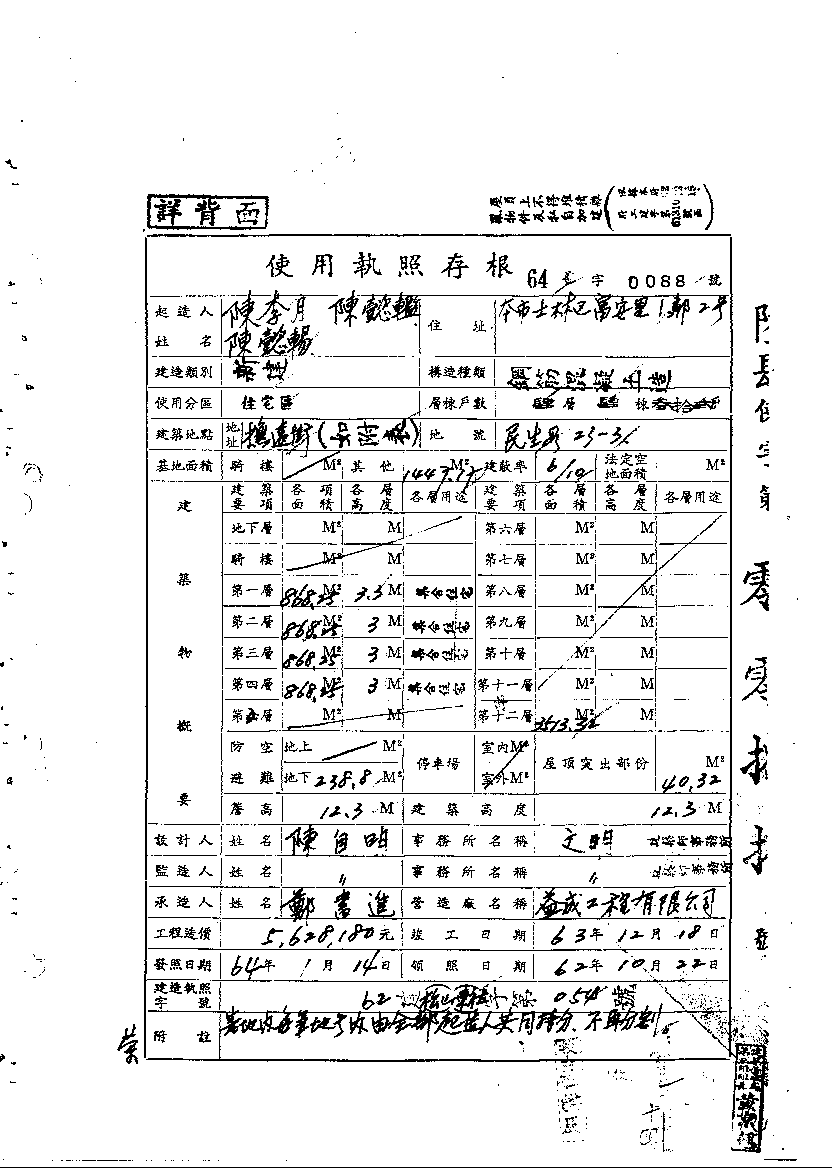 詳背面
屋頂上不得堆積雜
物件及私自加建
使用執照存根 64 字 0088 號
起造人 姓名 陳李月 陳懿
陳懿暢
住址 本市士林區富安里1鄰2号
建造類別
構造種類 鋼筋混凝土造
使用分區 住宅區
層棟戶數 層 棟
建築地點 地址 撫遠街
地號 民生段 23-31
基地面積 騎樓 M² 其他 M² 建蔽率 6/10 法定空地面積 M²
建築物概要
建築要項 各項面積 各層高度 各層用途 建築要項 各層面積 各層高度 各層用途
地下層 M² M 第六層 M² M
騎樓 M² M 第七層 M² M
第一層 868.25 M² 3.3 M 集合住宅 第八層 M² M
第二層 868.25 M² 3 M 集合住宅 第九層 M² M
第三層 868.25 M² 3 M 集合住宅 第十層 M² M
第四層 868.25 M² 3 M 集合住宅 第十一層 M² M
第五層 M² M 第十二層 3513.32 M² M
防空避難 地上 M² 停車場 室內M² 屋頂突出部份 M²
地下 238.8 M² 室外M² 40.32
簷高 12.3 M 建築高度 12.3 M
設計人 姓名 陳自明 事務所名稱 文明 建築師事務所
監造人 姓名 〃 事務所名稱 〃 建築師事務所
承造人 姓名 鄭書進 營造廠名稱 益成工程有限公司
工程造價 5,628,180元 竣工日期 63年12月18日
發照日期 64年1月14日 領照日期 62年10月22日
建造執照字號 62 054 號
附註 基地內各筆地号次由全部起造人共同持分、不再分割。
零零